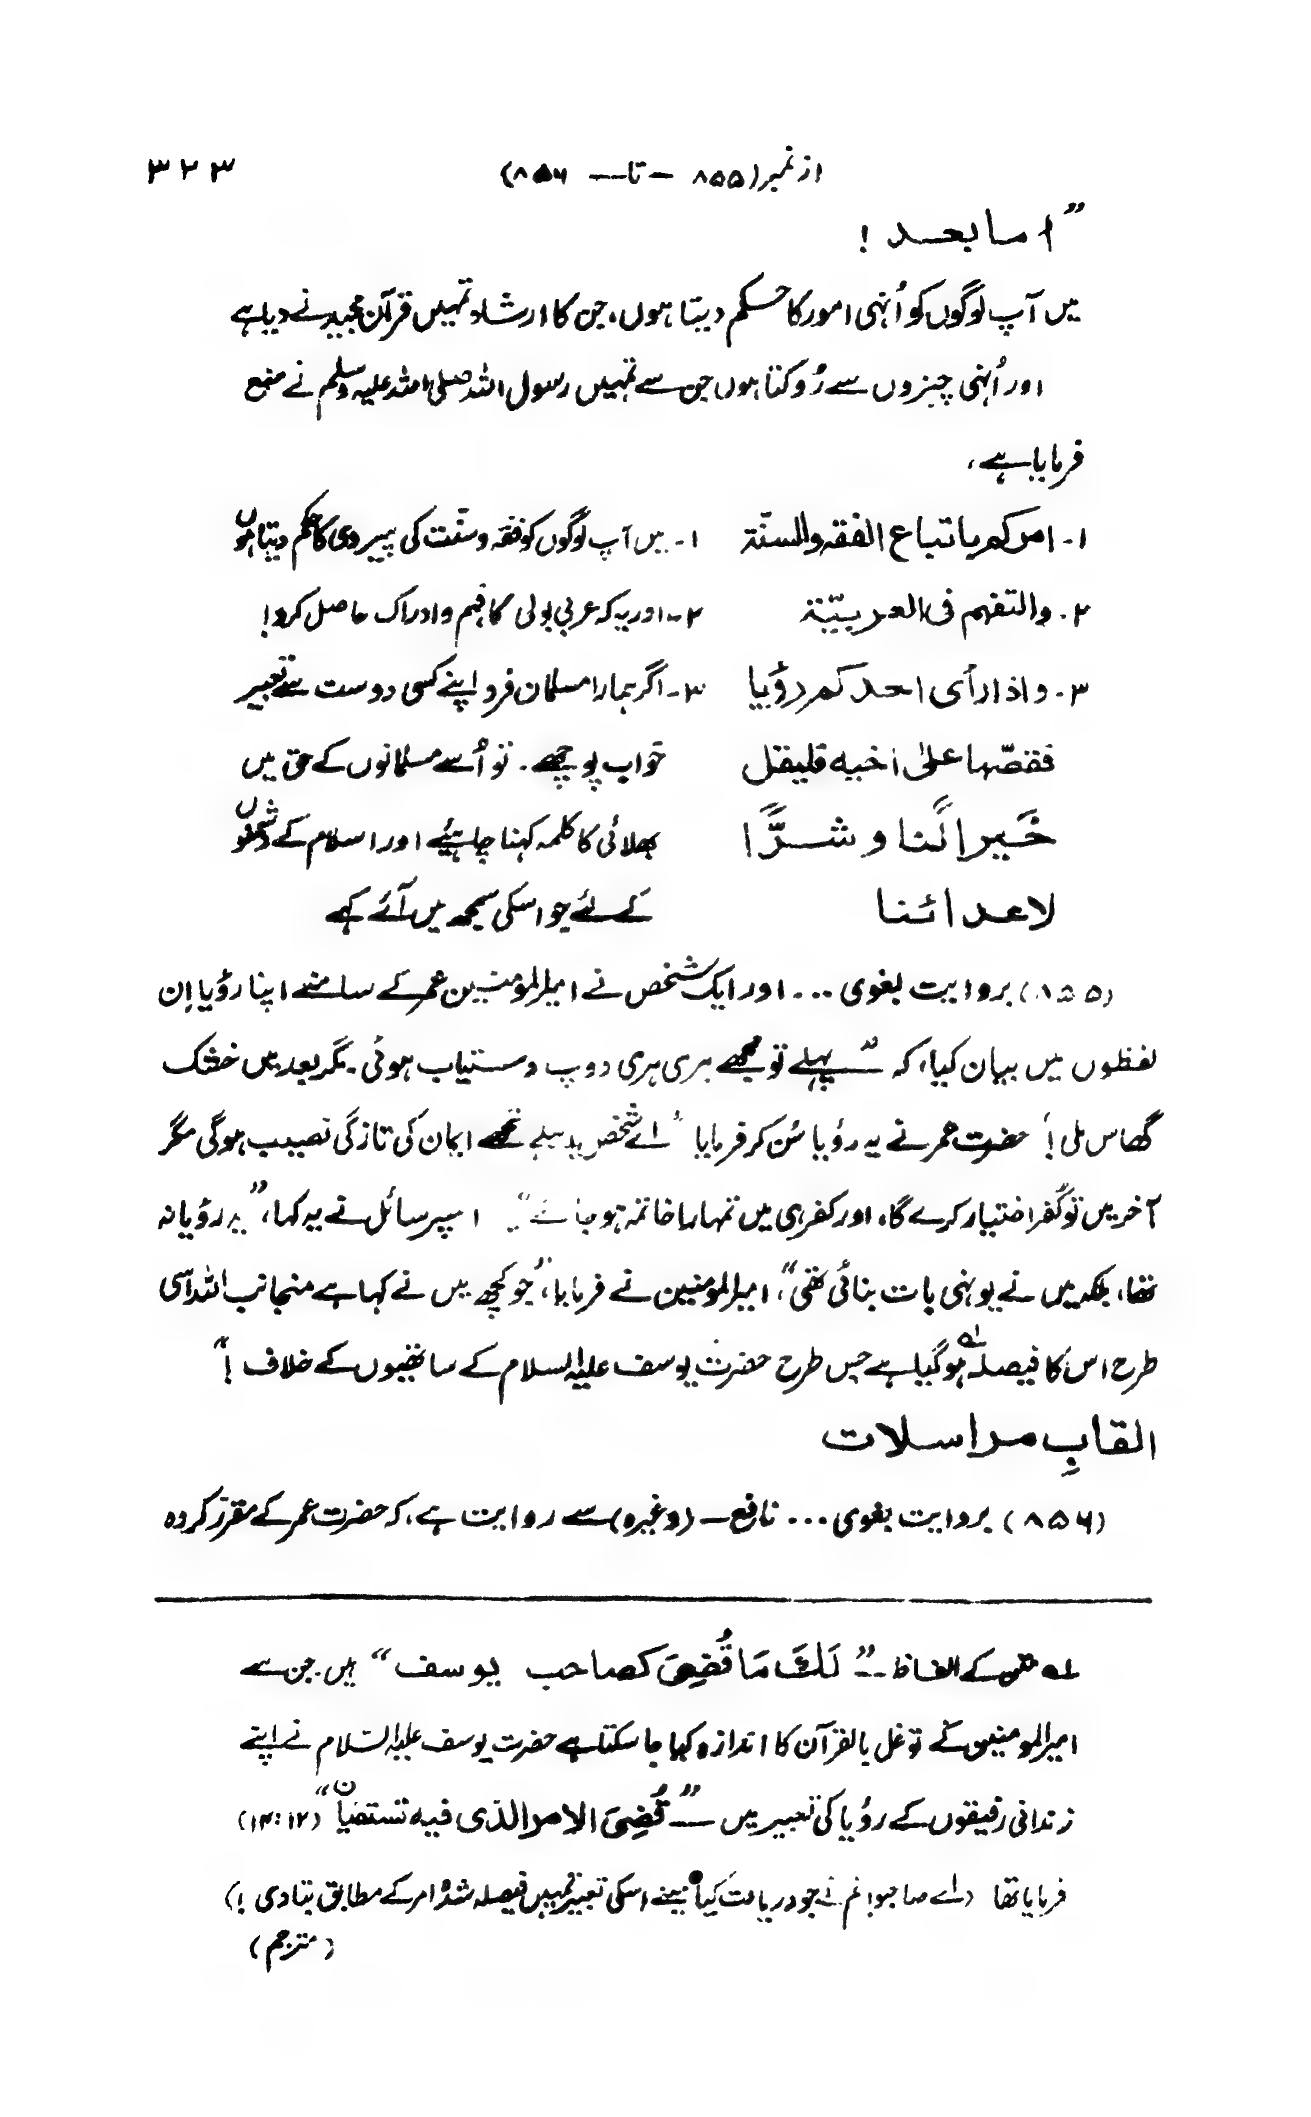 از نمبر (۸۵۵ — تا — ۸۵۶) ۳۲۳
”اما بعد !
میں آپ لوگوں کو اُنہی امور کا حکم دیتا ہوں، جن کا ارشاد تمہیں قرآن مجید نے دیا ہے
اور اُنہی چیزوں سے رُوکتا ہوں جن سے تمہیں رسول اللہ صلی اللہ علیہ وسلم نے منع
فرمایا ہے،
۱۔ امرکم باتباع الفقہ والسنّة ۱۔ میں آپ لوگوں کو فقہ و سنّت کی پیروی کا حکم دیتا ہوں
۲۔ والتفہم فی العربیّة ۲۔ اور یہ کہ عربی بولی کا فہم و ادراک حاصل کرو!
۳۔ واذا رأی احدکم رؤیا ۳۔ اگر ہمارا مسلمان فرد اپنے کسی دوست سے تعبیر
فقصّہا علیٰ اخیہ فلیقل خواب پوچھے۔ تو اُسے مسلمانوں کے حق میں
خَیرا لَّنا و شرًّا بھلائی کا کلمہ کہنا چاہئیے اور اسلام کے دشمنوں
لاعدائنا کے لئے جو اسکی سمجھ میں آئے کہے
(۸۵۵) بروایت بغوی ... اور ایک شخص نے امیر المؤمنین عمر کے سامنے اپنا رؤیا اِن
لفظوں میں بیان کیا، کہ ”پہلے تو مجھے ہری ہری دوب دستیاب ہوئی۔ مگر بعد میں خشک
گھاس ملی !“ حضرت عمر نے یہ رؤیا سُن کر فرمایا ”اے شخص پہلے تجھے ایمان کی تازگی نصیب ہوگی مگر
آخر میں تو کُفر اختیار کرے گا، اور کفر ہی میں تمہارا خاتمہ ہو جائے“ اسپر سائل نے یہ کہا، ”یہ رؤیا نہ
تھا، بلکہ میں نے یونہی بات بنائی تھی“، امیر المومنین نے فرمایا، ”جو کچھ میں نے کہا ہے منجانب اللہ اسی
طرح اس کا فیصلہ ہو گیا ہے جس طرح حضرت یوسف علیہ السلام کے ساتھیوں کے خلاف !“
القابِ مراسلات
(۸۵۶) بروایت بغوی ... نافع — (وغیرہ) سے روایت ہے، کہ حضرت عمر کے مقرر کردہ
کے الفاظ — ”لَکَ مَا قُضِیَ کصاحب یوسف“ ہیں۔ جن سے
امیر المومنین کے توغل بالقرآن کا اندازہ کیا جا سکتا ہے حضرت یوسف علیہ السلام نے اپنے
زندانی رفیقوں کے رؤیا کی تعبیر میں — ”قُضِیَ الامر الذی فیہ تستفتیان“ (۱۲:۴۱)
فرمایا تھا (اے صاحبو! تم نے جو دریافت کیا مینے اسکی تعبیر تمہیں فیصلہ شدہ امر کے مطابق بتا دی !)
(مترجم)